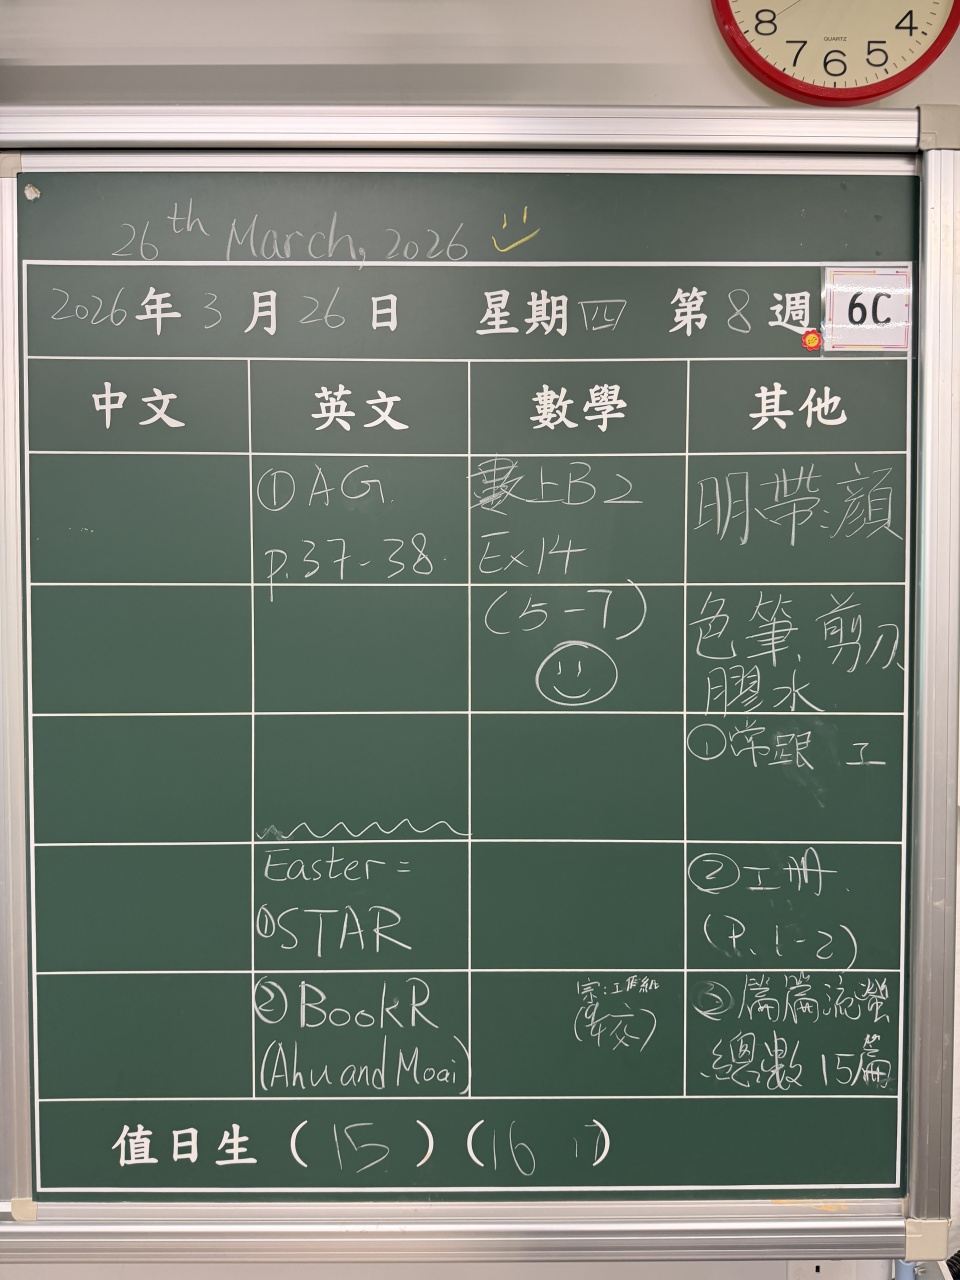 8 7 6 5 4
QUARTZ
26th March, 2026
2026年3月26日 星期四 第8週 6C
中文 英文 數學 其他
① AG.
p.37-38.
Easter =
① STAR
② BookR
(Ahu and Moai)
數上B2
Ex14
(5-7)
宗:工作紙
明帶:顏
色筆、剪刀
膠水
①常跟 工
②工冊.
(P.1-2)
③篇篇流螢
總數15篇
值日生(15)(16 17)